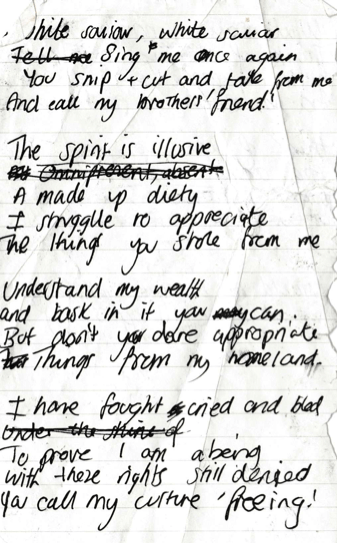 White saviour, white saviour
Tell me Sing to me once again
You snip + cut and take from me
And call my brothers 'friend!'
The spirit is illusive
Omnipresent, absent
A made up diety
I struggle to appreciate
The things you stole from me
Understand my wealth
and bask in it if you may can.
But don't you dare appropriate
Things from my homeland.
I have fought cried and bled
Under the shine of
To prove I am a being
with these rights still denied
You call my culture 'freeing!'